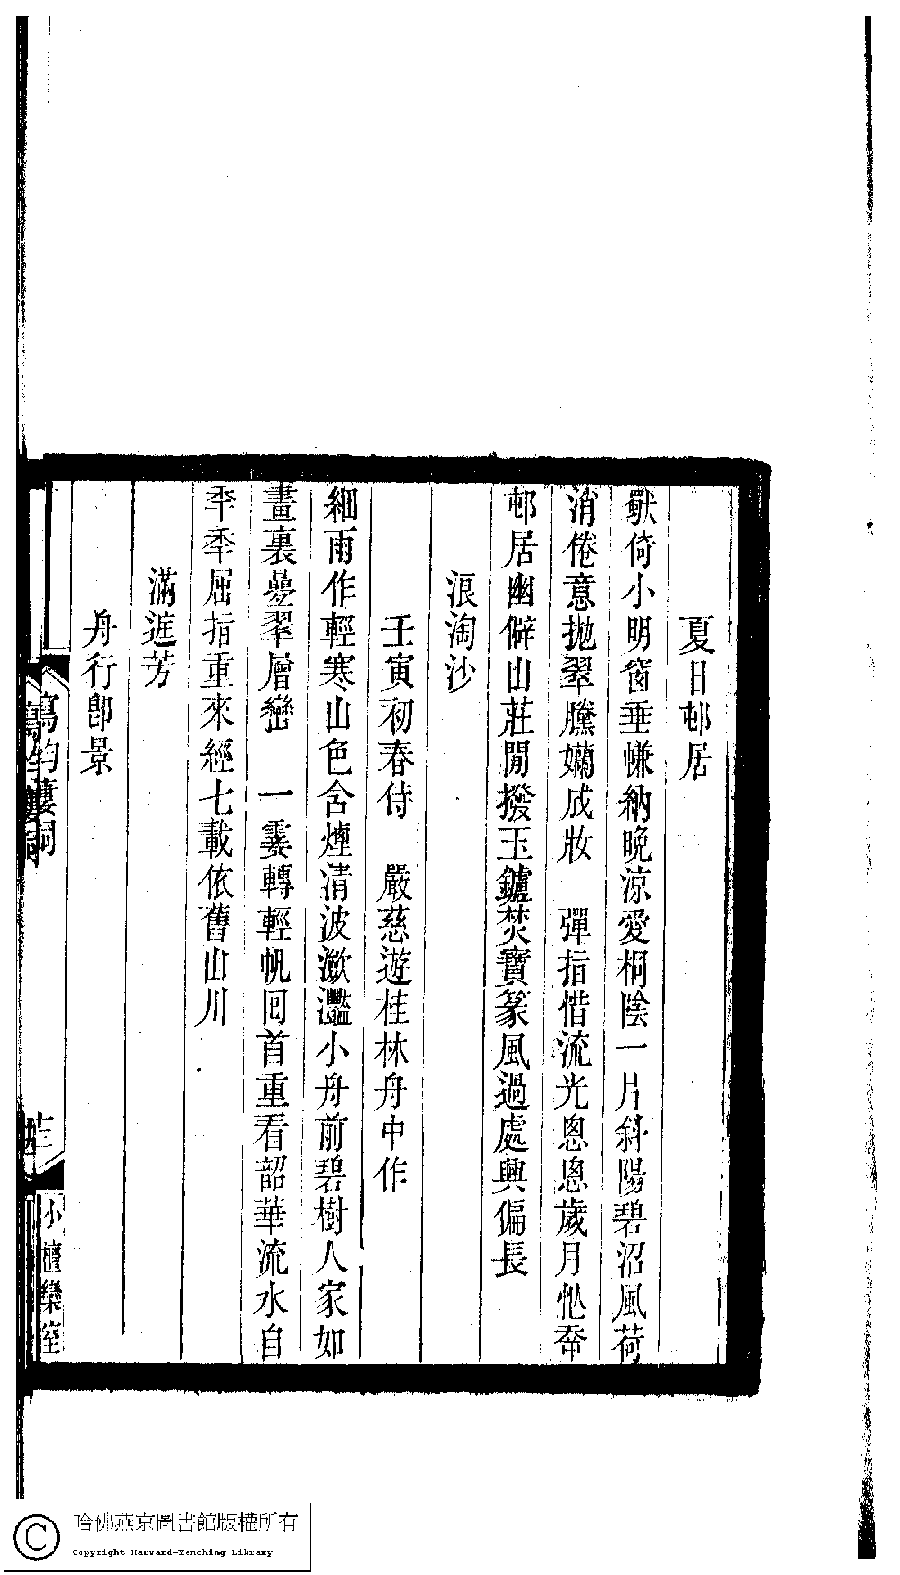 夏日邨居
猒倚小明窗垂㡘納晚涼愛桐陰一片斜陽碧沼風荷
消倦意拋翠騰嬾成妝　彈指惜流光悤悤歲月忙奩
邨居幽僻山莊閒撥玉鑪焚寶篆風過處興偏長
浪淘沙
壬寅初春侍　嚴慈遊桂林舟中作
細雨作輕寒山色含煙淸波瀲灩小舟前碧樹人家如
畫裏曡翠層巒　一霎轉輕帆回首重看韶華流水自
秊秊屈指重來經七載依舊山川
滿庭芳
舟行卽景
寫韵樓詞
三
小檀欒室
哈佛燕京圖書館版權所有
Copyright Harvard-Yenching Library